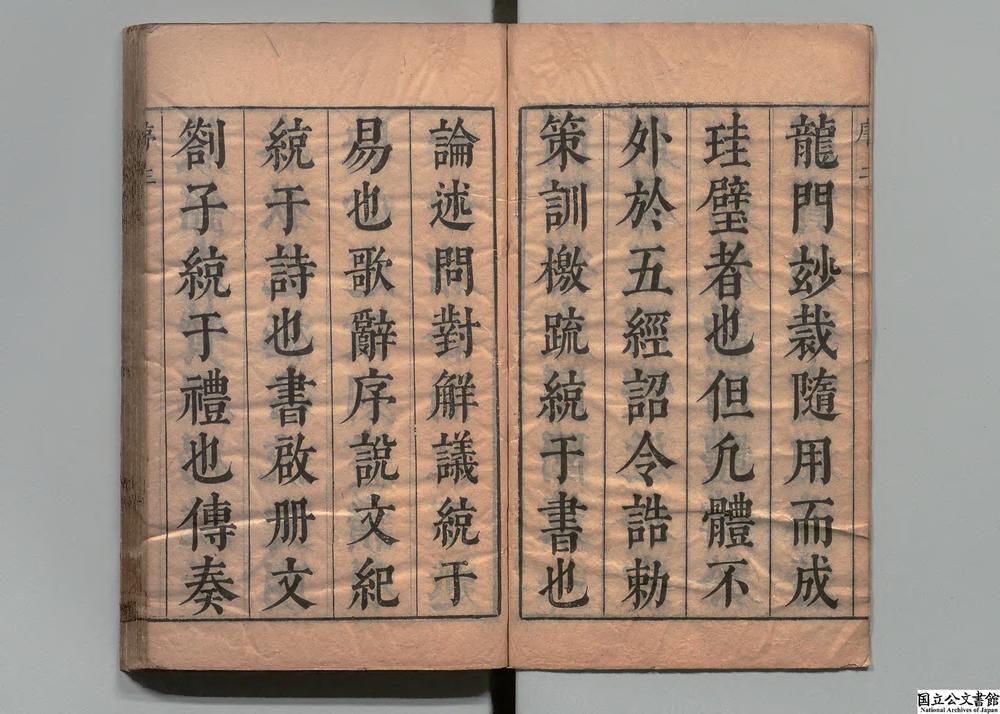 龍門玅裁隨用而成
珪璧者也但凢體不
外於五經詔令誥勅
策訓檄䟽統于書也
論述問對觧議統于
易也歌辭序說文紀
統于詩也書啟册文
劄子統于禮也傳奏
序二
序三
国立公文書館
National Archives of Japan